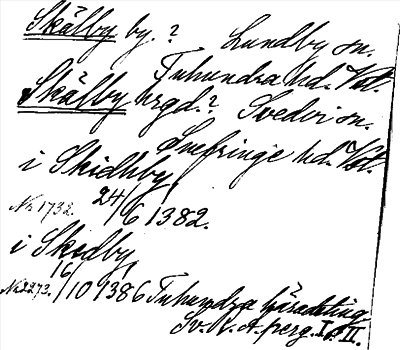 Skälby by. ? Lundby sn.
Tuhundra hd. Vstm.
Skälby hrgd.? Svedvi sn.
Snefringe hd. Vstm.
i Skidhby
No 1732. 24/6 1382.
i Skedby
No 2273. 16/10 1386 Tuhundra häradsting
Sv. R. A. perg. I o. II.